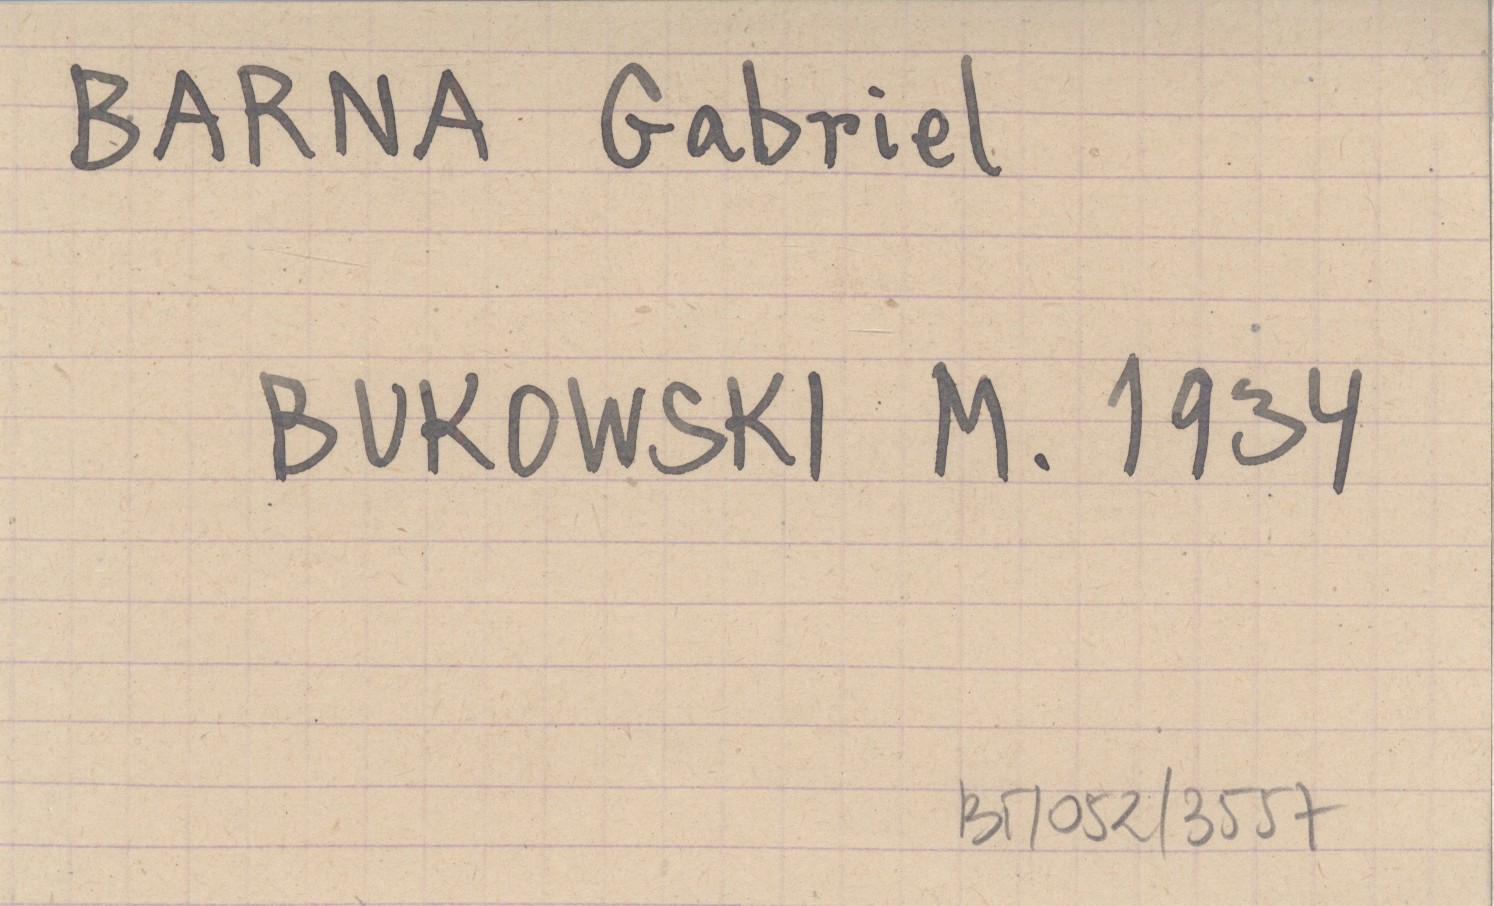 BARNA Gabriel
BUKOWSKI M. 1934
BT/052/3557